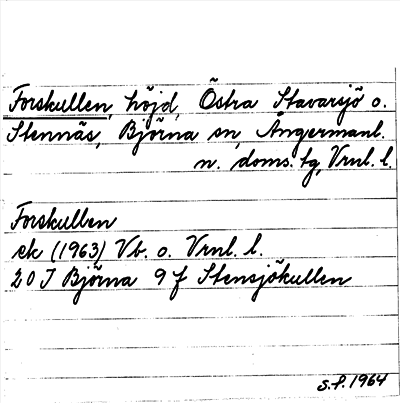 Forskullen, höjd, Östra Stavarsjö o.
Stennäs, Björna sn, Ångermanl.
n. doms. tg, Vrnl. l.
Forskullen
ek (1963) Vb. o. Vrnl. l.
20 J Björna 9 f Stensjökullen
S.P. 1964